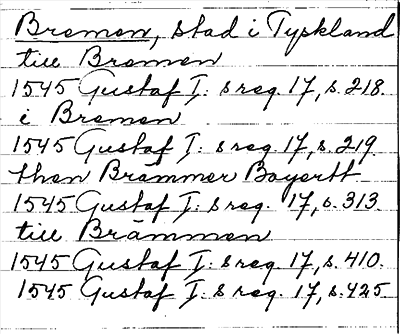 Bremen, stad i Tyskland
till Bremen
1545 Gustaf I: s reg. 17, s. 218.
i Bremen
1545 Gustaf I: s reg. 17, s. 219.
then Brämmer Boyertt
1545 Gustaf I: s reg. 17, s. 313.
till Brämmen
1545 Gustaf I: s reg. 17, s. 410.
1545 Gustaf I: s reg. 17, s. 425.